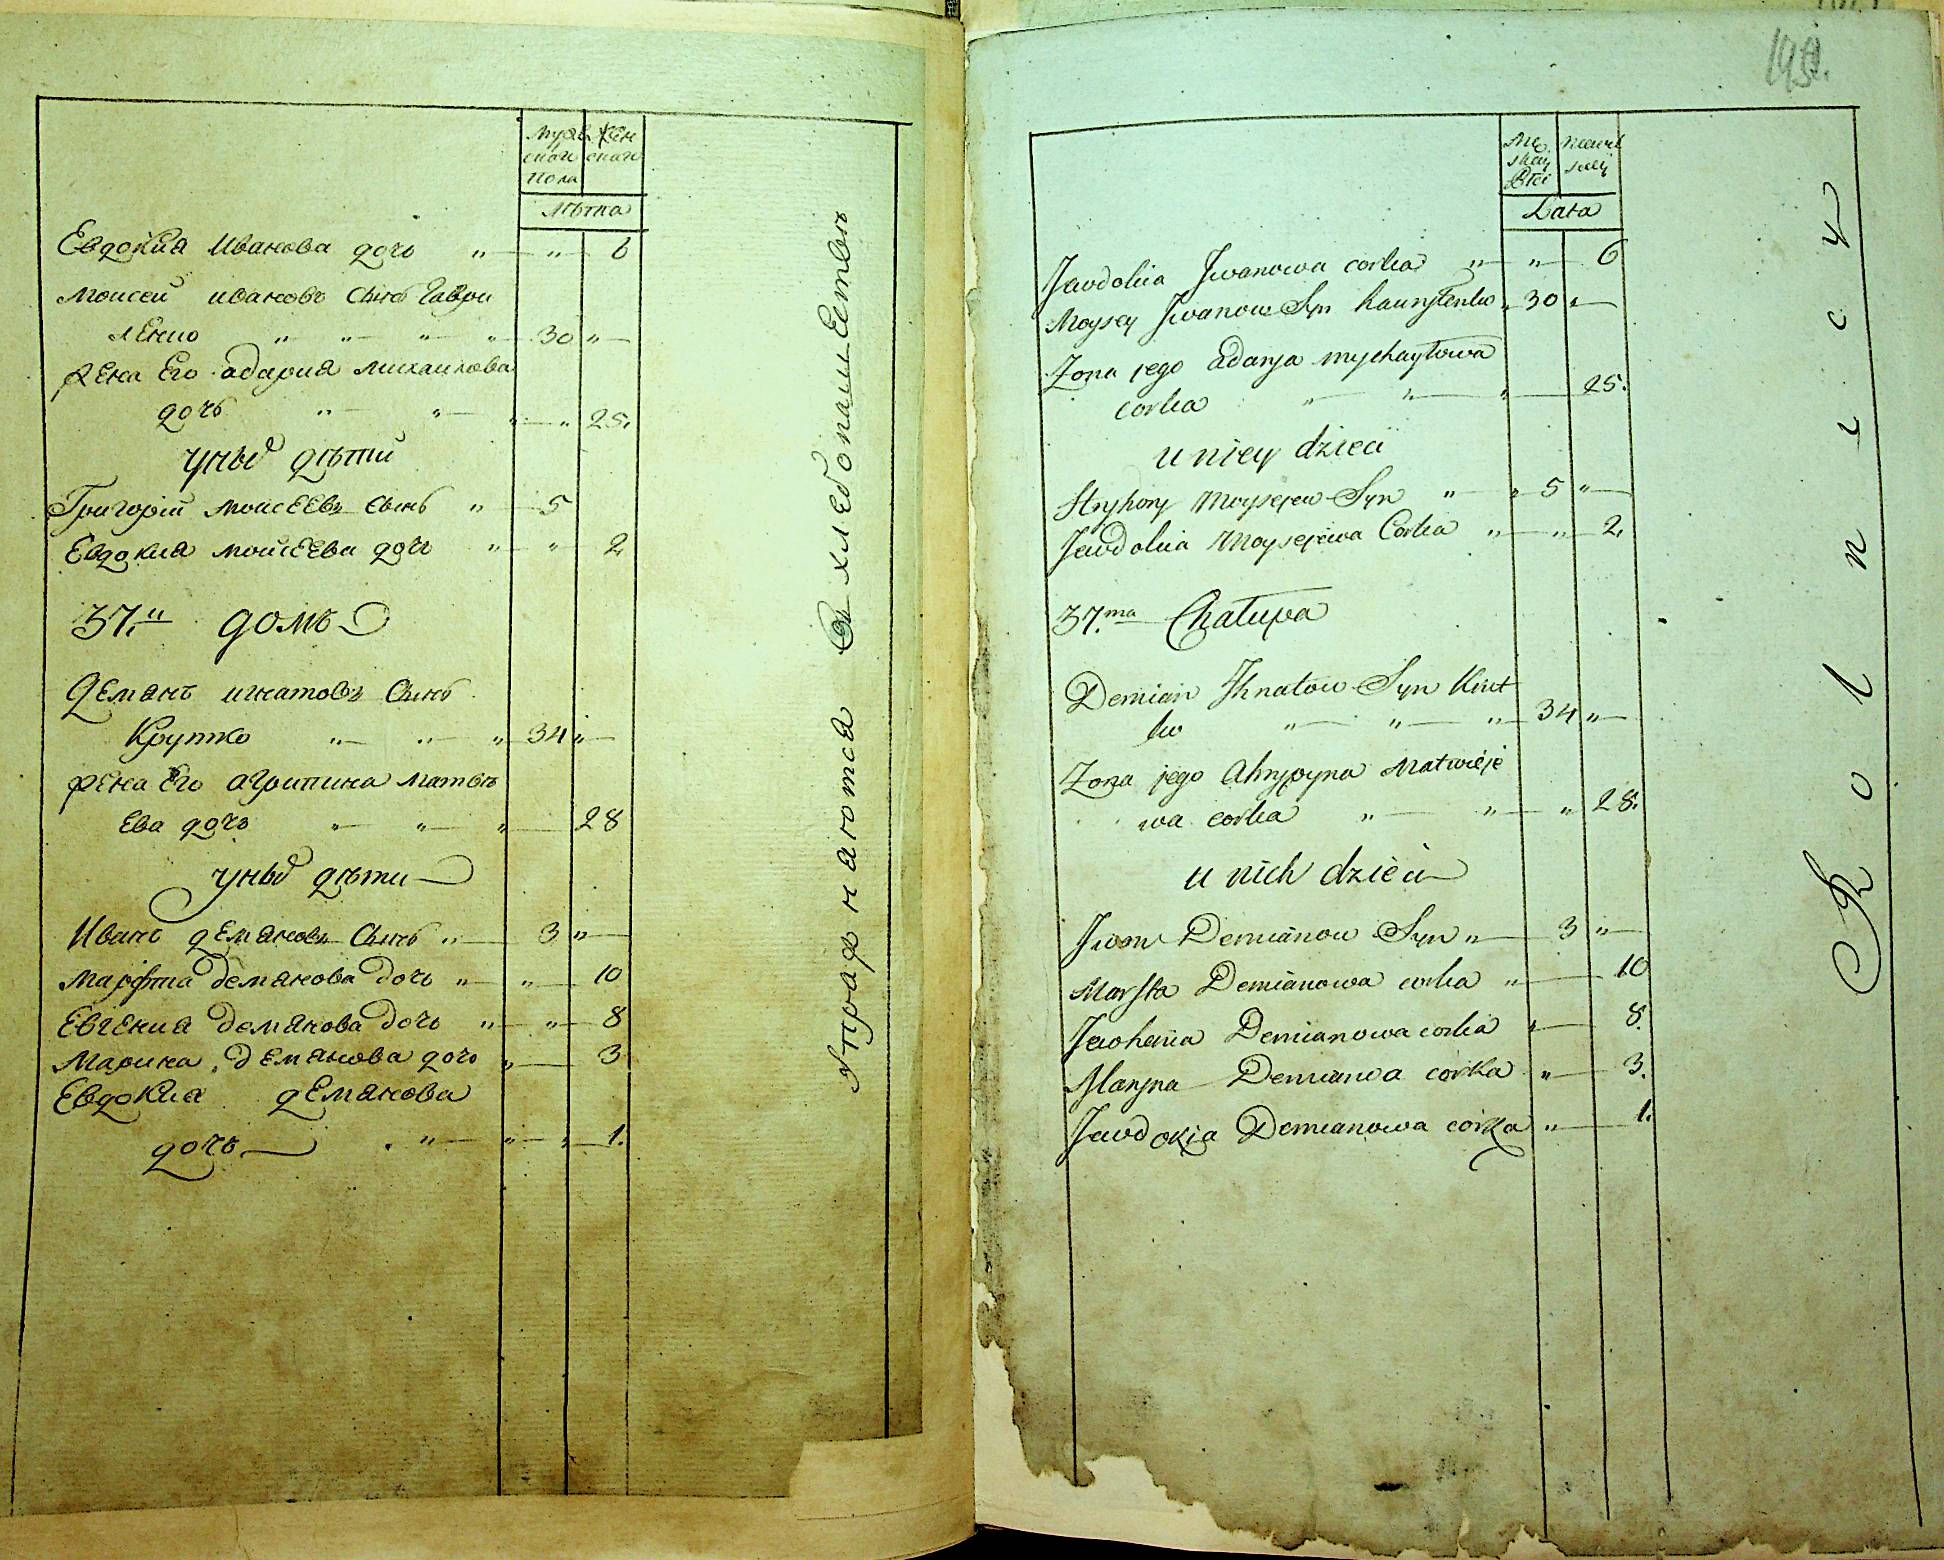 Мужеск Женскаго
скаго
пола
Лѣта
Евдокия Иванова дочь " " 6
Моисей ивановъ сынъ Гаври
ленко " " " " 30 "
жена Его адария михаилова
дочь " " " " 25.
у ныхъ дѣти
Григорій моисеевъ сынъ " 5
Евдокия моисеева дочь " " 2
37.й домъ
Демянъ игнатовъ сынъ
Крутко " " " 34 "
жена Его агрипина матвѣ
Ева дочь " " " 28
у ныхъ дѣти
Иванъ демяновъ сынъ " 3 "
Марфта демянова дочь " " 10
Евгения демянова дочь " " 8
Марина демянова дочь " 3
Евдокия демянова
дочь " " " 1.
Упражнаются в хлебопашестве
Mę
skay
Płci
Lata
Jewdokia Jwanowa corka " " 6
Moysey Jwanow Syn hawryłenko " 30 "
Zona jego adarya mychayłowa
corka " " " 25.
u niey dzieci
Hryhory Moysejew Syn " " 5 "
Jewdokia Moysejewa Corka " " 2.
37.ma Chałupa
Demian Ihnatow Syn Krut
ko " " " 34 "
Zona jego Ahrypyna Matwieje
wa corka " " " 28.
u nich dzieci
Jwan Demianow Syn " 3 "
Marfta Demianowa corka " 10
Jewhenia Demianowa corka " 8.
Maryna Demianwa corka " 3.
Jewdokia Demianowa corka " 1.
Rolnicy